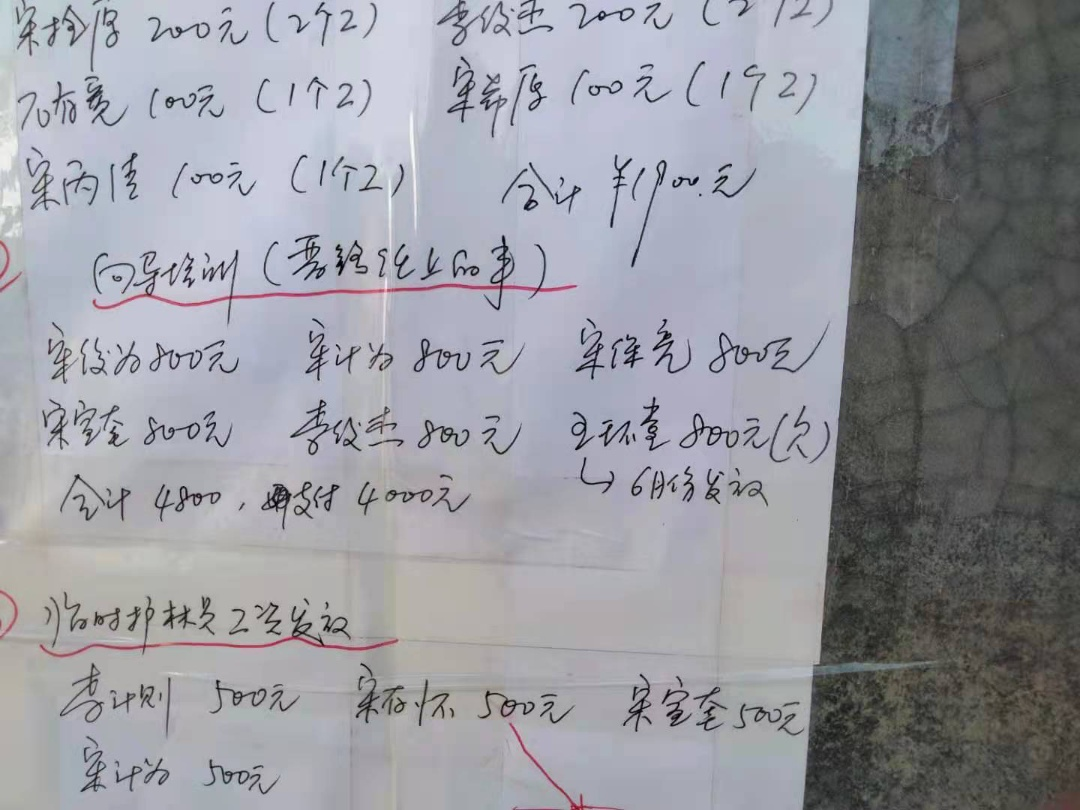 宋拴厚 200元(2个2) 李俊杰 200元(2个2)
100元(1个2) 宋希厚 100元(1个2)
宋丙信 100元(1个2) 合计 ¥1900.元
向导培训(
宋俊为800元 宋计为 800元 宋保亮 800元
宋宝奎 800元 李俊杰 800元 王环堂 800元(欠)
↳ 6月份发放
合计 4800,支付4000元
临时护林员工资发放
李计则 500元 宋存怀 500元 宋宝奎500元
宋计为 500元